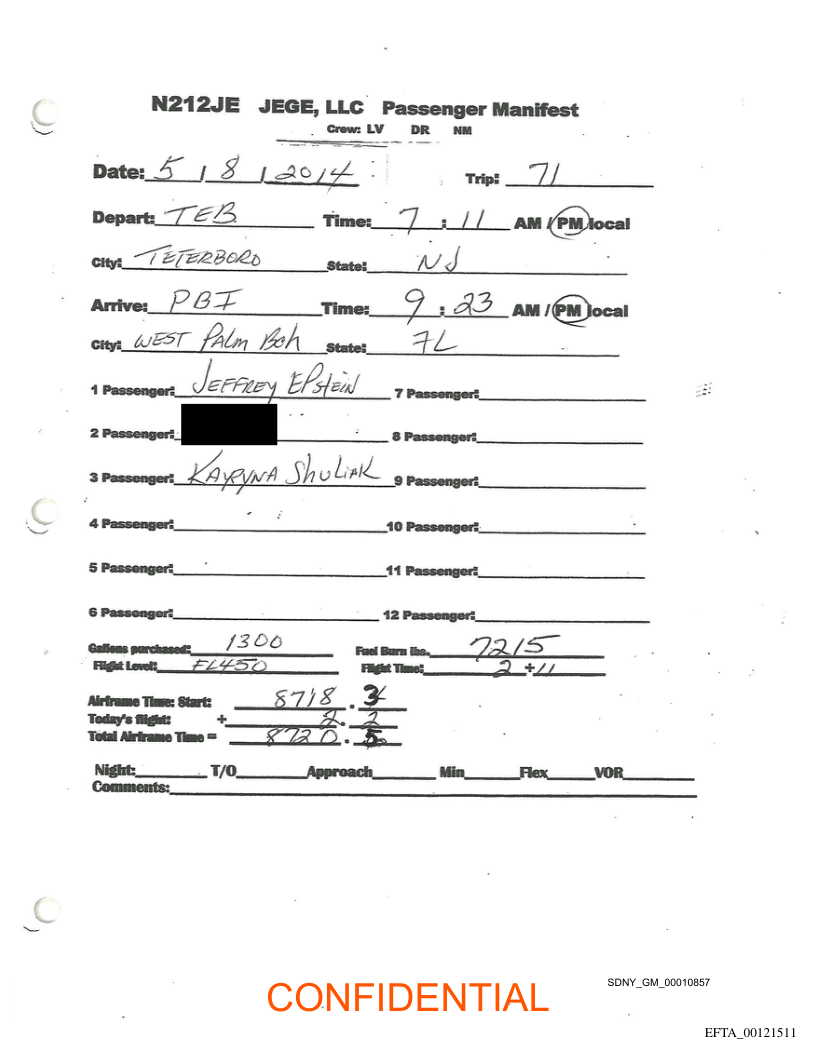 N212JE JEGE, LLC Passenger Manifest
Crew: LV DR NM
Date: 5 / 8 / 2014 Trip: 71
Depart: TEB Time: 7 : 11 AM / PM local
City: TETERBORO State: NJ
Arrive: PBI Time: 9 : 23 AM / PM local
City: WEST PALM BCH State: FL
1 Passenger: JEFFREY EPSTEIN 7 Passenger:
2 Passenger: 8 Passenger:
3 Passenger: KARYNA SHULIAK 9 Passenger:
4 Passenger: 10 Passenger:
5 Passenger: 11 Passenger:
6 Passenger: 12 Passenger:
Gallons purchased: 1300 Fuel Burn lbs. 7215
Flight Level: FL450 Flight Time: 2 + 11
Airframe Time: Start: 8718 . 3
Today's flight: + 2 . 2
Total Airframe Time = 8720 . 5
Night: T/O Approach Min Flex VOR
Comments:
CONFIDENTIAL
SDNY_GM_00010857
EFTA_00121511